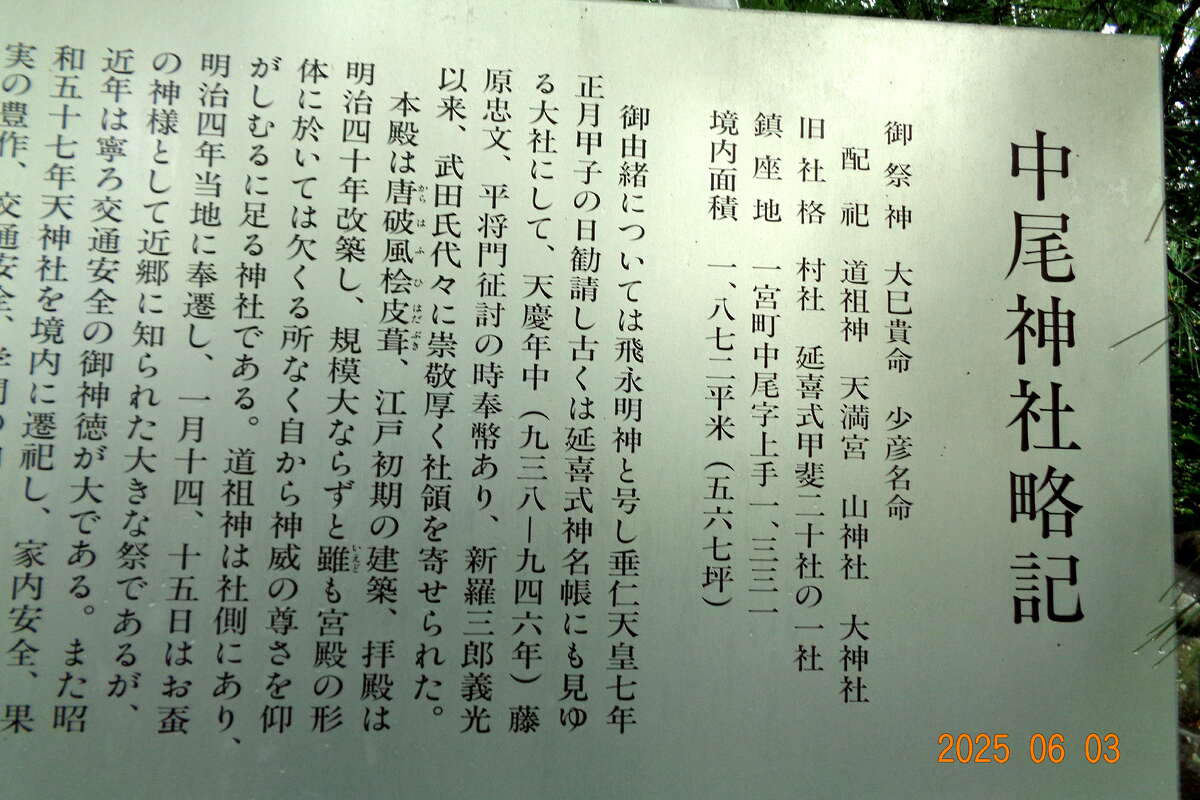 中尾神社略記
御祭神　大巳貴命　少彦名命
配祀　道祖神　天満宮　山神社　大神社
旧社格　村社　延喜式甲斐二十社の一社
鎮座地　一宮町中尾字上手一、三三一
境内面積　一、八七二平米（五六七坪）
御由緒については飛永明神と号し垂仁天皇七年
正月甲子の日勧請し古くは延喜式神名帳にも見ゆ
る大社にして、天慶年中（九三八―九四六年）藤
原忠文、平将門征討の時奉幣あり、新羅三郎義光
以来、武田氏代々に崇敬厚く社領を寄せられた。
本殿は唐破風桧皮葺、江戸初期の建築、拝殿は
明治四十年改築し、規模大ならずと雖も宮殿の形
体に於いては欠くる所なく自から神威の尊さを仰
がしむるに足る神社である。道祖神は社側にあり、
明治四年当地に奉遷し、一月十四、十五日はお蚕
の神様として近郷に知られた大きな祭であるが、
近年は寧ろ交通安全の御神徳が大である。また昭
和五十七年天神社を境内に遷祀し、家内安全、果
実の豊作、交通安全、学問の
2025 06 03